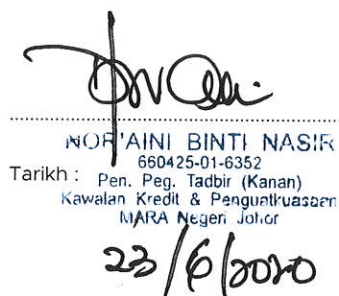 NOR'AINI BINTI NASIR
660425-01-6352
Tarikh : Pen. Peg. Tadbir (Kanan)
Kawalan Kredit & Penguatkuasaan
MARA Negeri Johor
23/6/2020